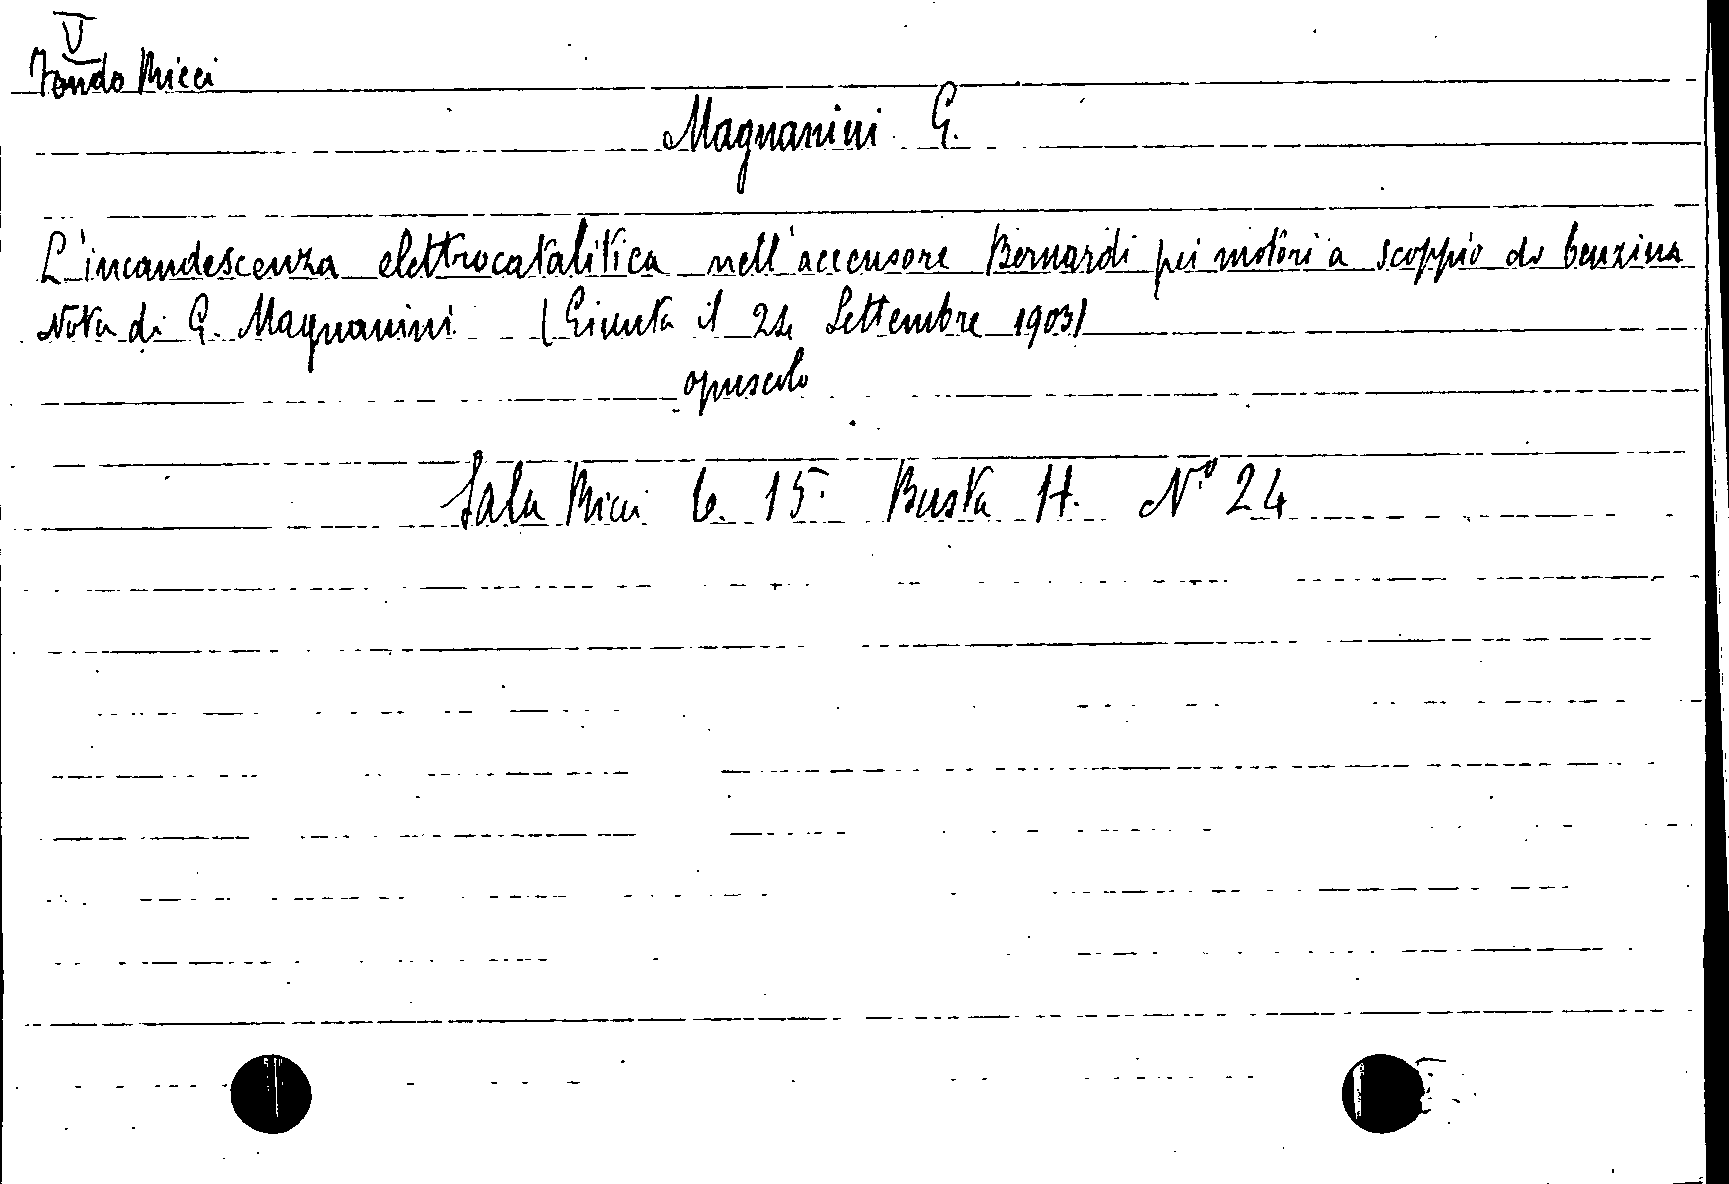 V
Fondo Ricci
Magnanini G.
L'incandescenza elettrocatalitica nell'accensore Bernardi pei motori a scoppio da benzina
Nota di G. Magnanini (Giunta il 24 Settembre 1903)
opuscolo
Sala Ricci C. 15. Busta H. N.º 24